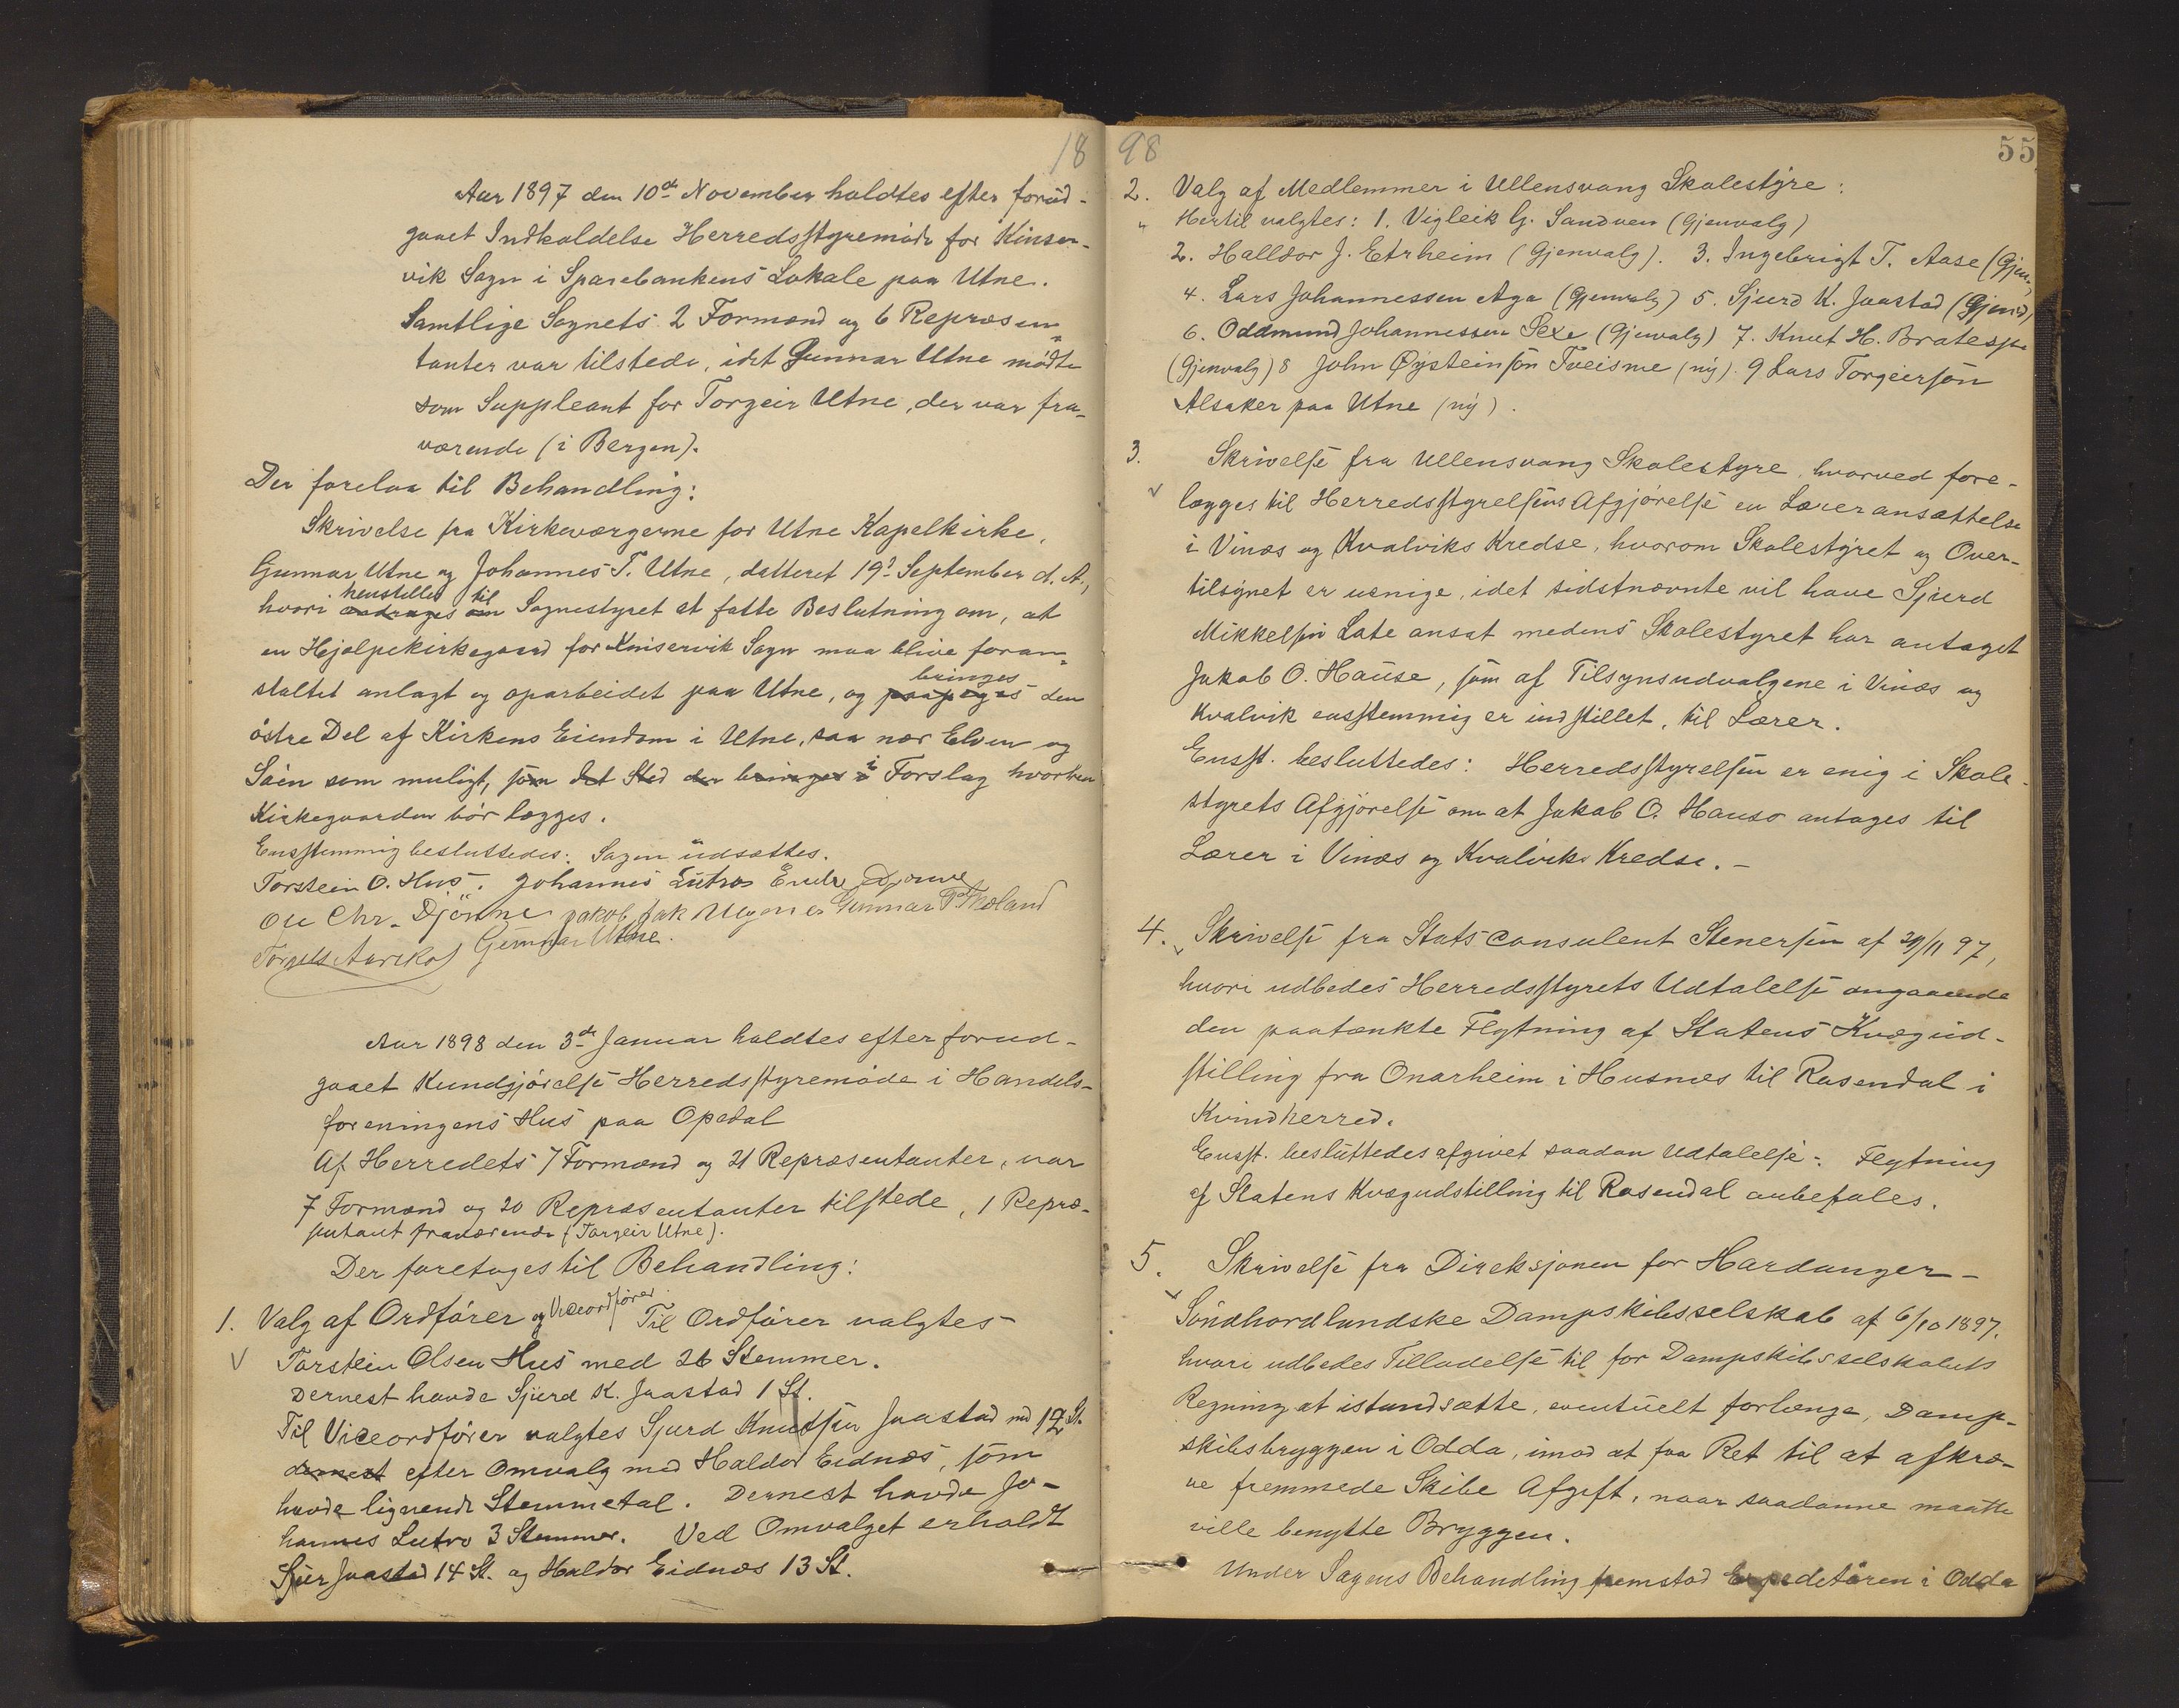 18
Aar 1897 den 10de November holdtes efter forud-
gaaet Indkaldelse Herredsstyremøde for Kinser-
vik Sogn i Sparebankens Lokale paa Utne.
Samtlige Sognets 2 Formænd og 6 Repræsen-
tanter var tilstede, idet Gunnar Utne mødte
som Suppleant for Torgeir Utne, der var fra-
værende (i Bergen).
Der forelaa til Behandling:
Skrivelse fra Kirkeværgerne for Utne Kapelkirke,
Gunnar Utne og Johannes T. Utne, datteret 19de September d. A.,
henstilles til
hvori andrages om Sognestyret at fatte Beslutning om, at
en Hjælpekirkegaard for Kinservik Sogn maa blive foran-
bringes
staltet anlagt og oparbeidet paa Utne, og paapeges den
østre Del af Kirkens Eiendom i Utne, saa nær Elven og
Søen som muligt, som det Sted der bringes i i Forslag hvorhen
Kirkegaarden bør lægges.
Ensstemmig besluttedes: Sagen udsættes.
Torstein O. Hus. Johannes Lutro Endre Djønne
Ole Chr. Djønne Jakob Jak Gunnar T. Skoland
Torgils Aurskog Gunnar Utne.
Aar 1898 den 3de Januar holdtes efter forud-
gaaet Kundgjørelse Herredsstyremøde i Handels-
foreningens Hus paa Opedal
Af Herredets 7 Formænd og 21 Repræsentanter, var
7 Formænd og 20 Repræsentanter tilstede, 1 Repræ-
sentant fraværende (Torgeir Utne).
Der foretoges til Behandling:
1. Valg af Ordfører og Viceordfører. Til Ordfører valgtes
Torstein Olsen Hus med 26 Stemmer.
Dernest havde Sjurd K. Jaastad 1 St.
Til Viceordfører valgtes Sjurd Knudsen Jaastad md 12 St.
dernest efter Omvalg med Haldor Eidnæs, som
havde lignende Stemmetal. Dernest havde Jo-
hannes Lutro 3 Stemmer. Ved Omvalget erholdt
Sjur Jaastad 14 St. og Haldor Eidnæs 13 St.
98
55
2. Valg af Medlemmer i Ullensvang Skolestyre:
Hertil valgtes: 1. Vigleik G. Sandven (Gjenvalg)
2. Halldor J. Etrheim (Gjenvalg). 3. Ingebrigt T. Aase (Gjen.)
4. Lars Johannessen Aga (Gjenvalg) 5. Sjurd K. Jaastad (Gjenv.)
6. Oddmund Johannessen Sexe (Gjenvalg) 7. Knut H. Bratespe
(Gjenvalg) 8 John Øysteinsøn Tveisme (ny). 9 Lars Torgeirsøn
Alsaker paa Utne (ny).
3. Skrivelse fra Ullensvang Skolestyre, hvorved fore-
lægges til Herredsstyrelsens Afgjørelse en Læreransættelse
i Vinæs og Kvalviks Kredse, hvorom Skolestyret og Over-
tilsynet er uenige, idet sidstnævnte vil have Sjurd
Mikkelsen Lote ansat medens Skolestyret har antaget
Jakob O. Hause, som af Tilsynsudvalgene i Vinæs og
Kvalvik ensstemmig er indstillet, til Lærer.
Ensst. besluttedes: Herredsstyrelsen er enig i Skole-
styrets Afgjørelse om at Jakob O. Hauso antages til
Lærer i Vinæs og Kvalviks Kredse. -
4. Skrivelse fra Statsconsulent Stenersen af 29/11 97,
hvori udbedes Herredsstyrets Udtalelse angaaende
den paatænkte Flytning af Statens Kvægud-
stilling fra Onarheim i Husnes til Rosendal i
Kvindherred.
Ensst. besluttedes afgivet saadan Udtalelse: Flytning
af Statens Kvægudstilling til Rosendal anbefales.
5. Skrivelse fra Direksjonen for Hardanger-
Søndhordlandske Dampskibsselskab af 6/10 1897.
hvori udbedes Tilladelse til for Dampskibsselskabets
Regning at istandsætte, eventuelt forlænge, Damp-
skibsbryggen i Odda, imod at faa Ret til at afkræ-
ve fremmede Skibe Afgift, naar saadanne maatte
ville benytte Bryggen.
Under Sagens Behandling fremstod Expeditøren i Odda